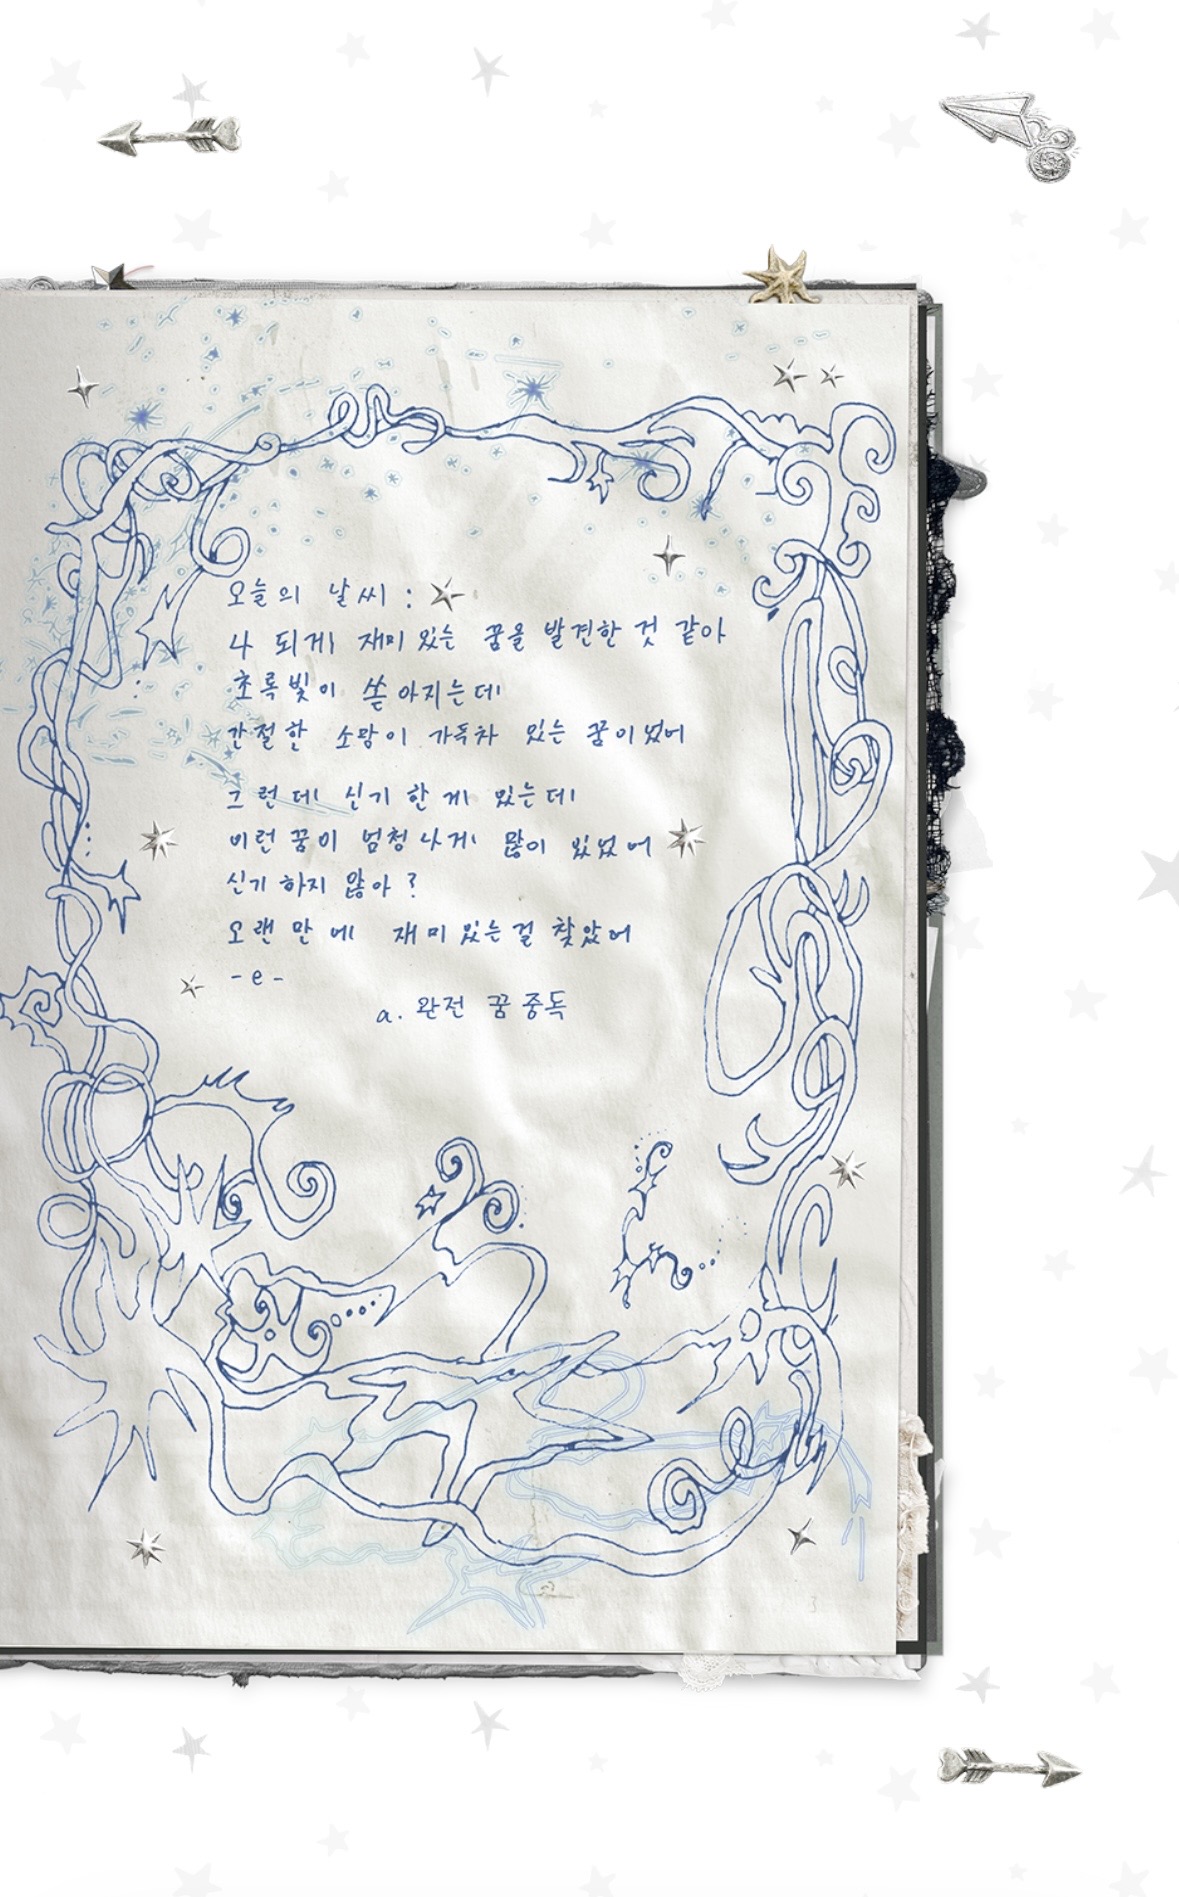 오늘의 날씨 :
나 되게 재미있는 꿈을 발견한 것 같아
초록빛이 쏟아지는데
간절한 소망이 가득차 있는 꿈이었어
그런데 신기한 게 있는데
이런 꿈이 엄청나게 많이 있었어
신기하지 않아 ?
오랜만에 재미있는걸 찾았어
- e -
a. 완전 꿈 중독